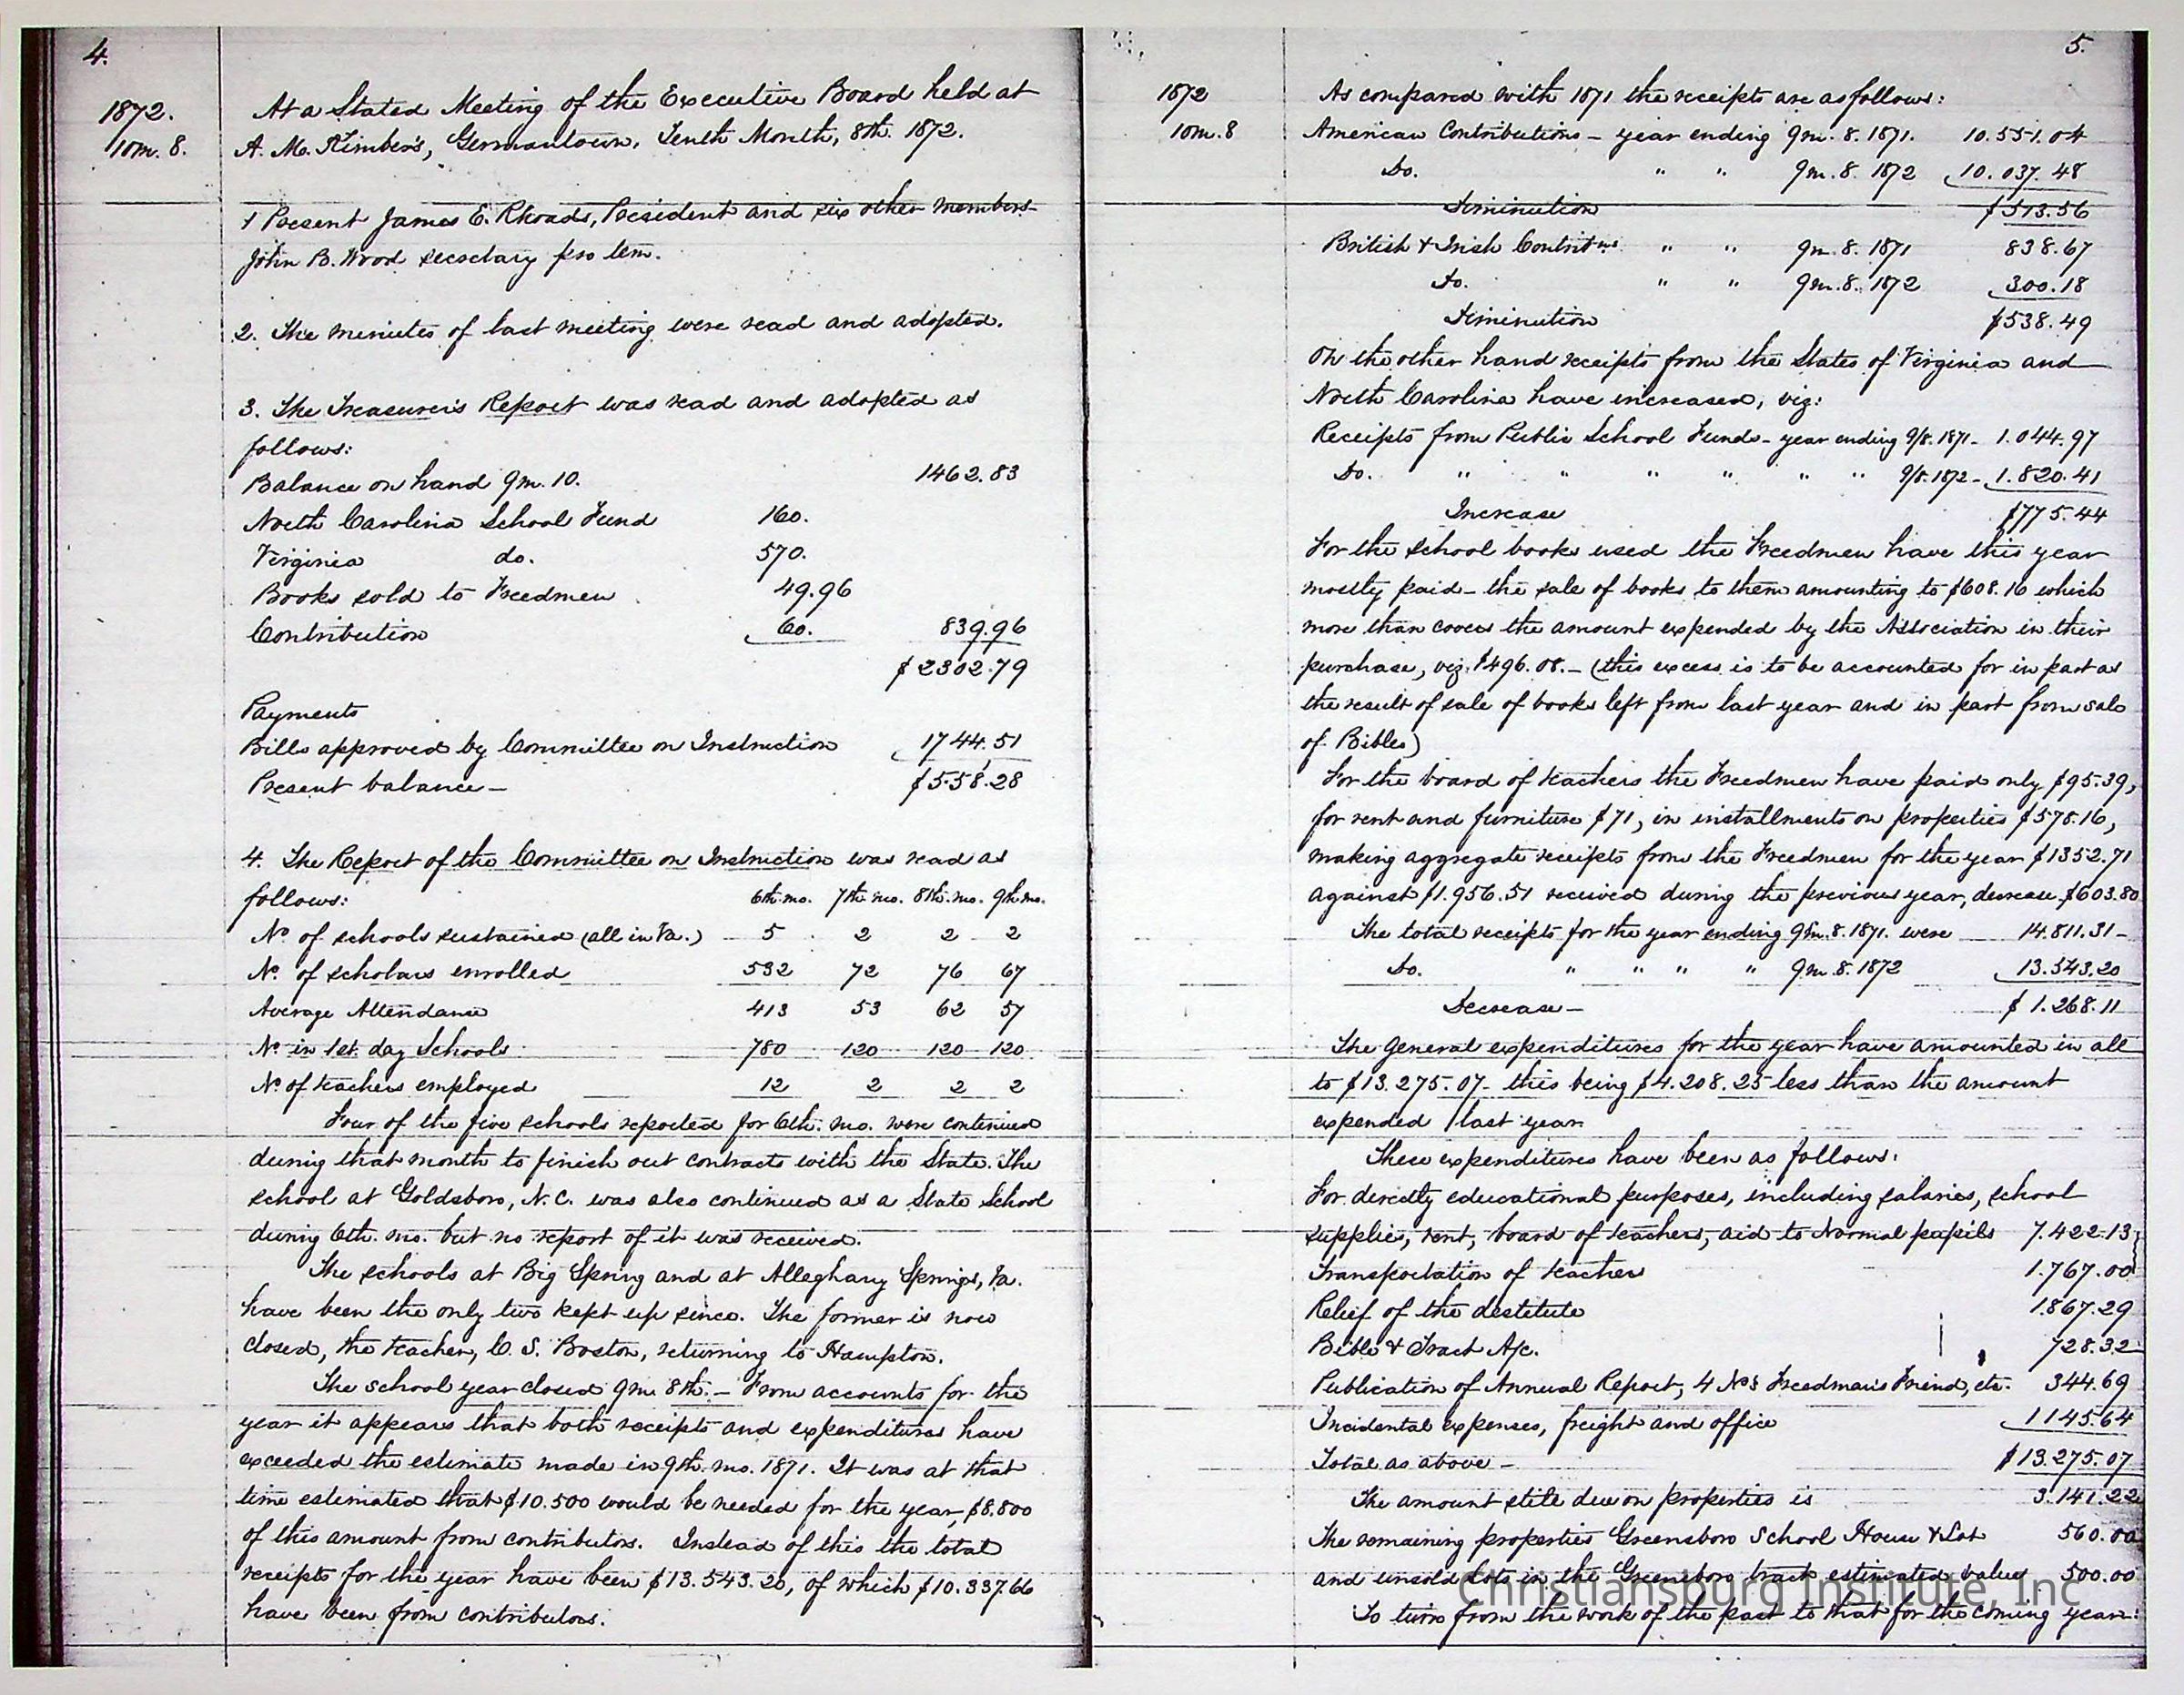 4.
1872.
10m. 8.
At a Stated Meeting of the Executive Board held at
A. M. Kimber's, Germantown, Tenth Month, 8th. 1872.
1 Present James E. Rhoads, President and six other members-
John B. Wood secretary pro tem.
2. The minutes of last meeting were read and adopted.
3. The Treasurer's Report was read and adopted as
follows:
Balance on hand 9m. 10. 1462.83
North Carolina School Fund 160.
Virginia do. 570.
Books sold to Freedmen 49.96
Contribution 60. 839.96
$2302.79
Payments
Bills approved by Committee on Instruction 1744.51
Present balance - $558.28
4. The Report of the Committee on Instruction was read as
follows: 6th mo. 7th mo. 8th. mo. 9th mo.
No. of schools sustained (all in Va.) 5 2 2 2
No. of scholars enrolled 532 72 76 67
Average Attendance 413 53 62 57
No. in 1st. day Schools 780 120 120 120
No. of teachers employed 12 2 2 2
Four of the five schools reported for 6th. mo. were continued
during that month to finish out contracts with the State. The
school at Goldsboro, N.C. was also continued as a State School
during 6th. mo. but no report of it was received.
The schools at Big Spring and at Alleghany Springs, Va.
have been the only two kept up since. The former is now
closed, the teacher, C. S. Boston, returning to Hampton.
The school year closed 9m. 8th. - From accounts for the
year it appears that both receipts and expenditures have
exceeded the estimate made in 9th. mo. 1871. It was at that
time estimated that $10.500 would be needed for the year, $8.800
of this amount from contributors. Instead of this the total
receipts for the year have been $13.543.20, of which $10.337.66
have been from contributors.
5.
1872
10m. 8
As compared with 1871 the receipts are as follows:
American Contributions - year ending 9m. 8. 1871. 10.551.04
Do. " " 9m. 8. 1872 10.037.48
Diminution $513.56
British & Irish Contribns. " " 9m. 8. 1871 838.67
Do. " " 9m. 8. 1872 300.18
Diminution $538.49
On the other hand receipts from the States of Virginia and
North Carolina have increased, viz:
Receipts from Public School Funds - year ending 9/8. 1871 - 1.044.97
Do. " " " " " " 9/8. 1872 - 1.820.41
Increase $775.44
For the school books used the Freedmen have this year
mostly paid - the sale of books to them amounting to $608.16 which
more than covers the amount expended by the Association in their
purchase, viz. $496.08. - (this excess is to be accounted for in part as
the result of sale of books left from last year and in part from sale
of Bibles)
For the board of teachers the Freedmen have paid only $95.39,
for rent and furniture $71, in installments on properties $578.16,
making aggregate receipts from the Freedmen for the year $1352.71
against $1.956.51 received during the previous year, decrease $603.80
The total receipts for the year ending 9m. 8. 1871. were 14.811.31 -
Do. " " " " 9m. 8. 1872 13.543.20
Decrease - $1.268.11
The general expenditures for the year have amounted in all
to $13.275.07 - this being $4.208.25 less than the amount
expended last year.
These expenditures have been as follows:
For directly educational purposes, including salaries, school
supplies, rent, board of teachers, aid to Normal pupils 7.422.13
Transportation of teachers 1.767.00
Relief of the destitute 1.867.29
Bible & Tract A/c. 728.32
Publication of Annual Report, 4 Nos Freedman's Friend, etc. 344.69
Incidental expenses, freight and office 1145.64
Total as above - $13.275.07
The amount still due on properties is 3.141.22
The remaining properties Greensboro School House & Lot 560.00
and unsold Lots in the Greensboro tract estimated value 500.00
To turn from the work of the past to that for the coming year:
Christiansburg Institute, Inc